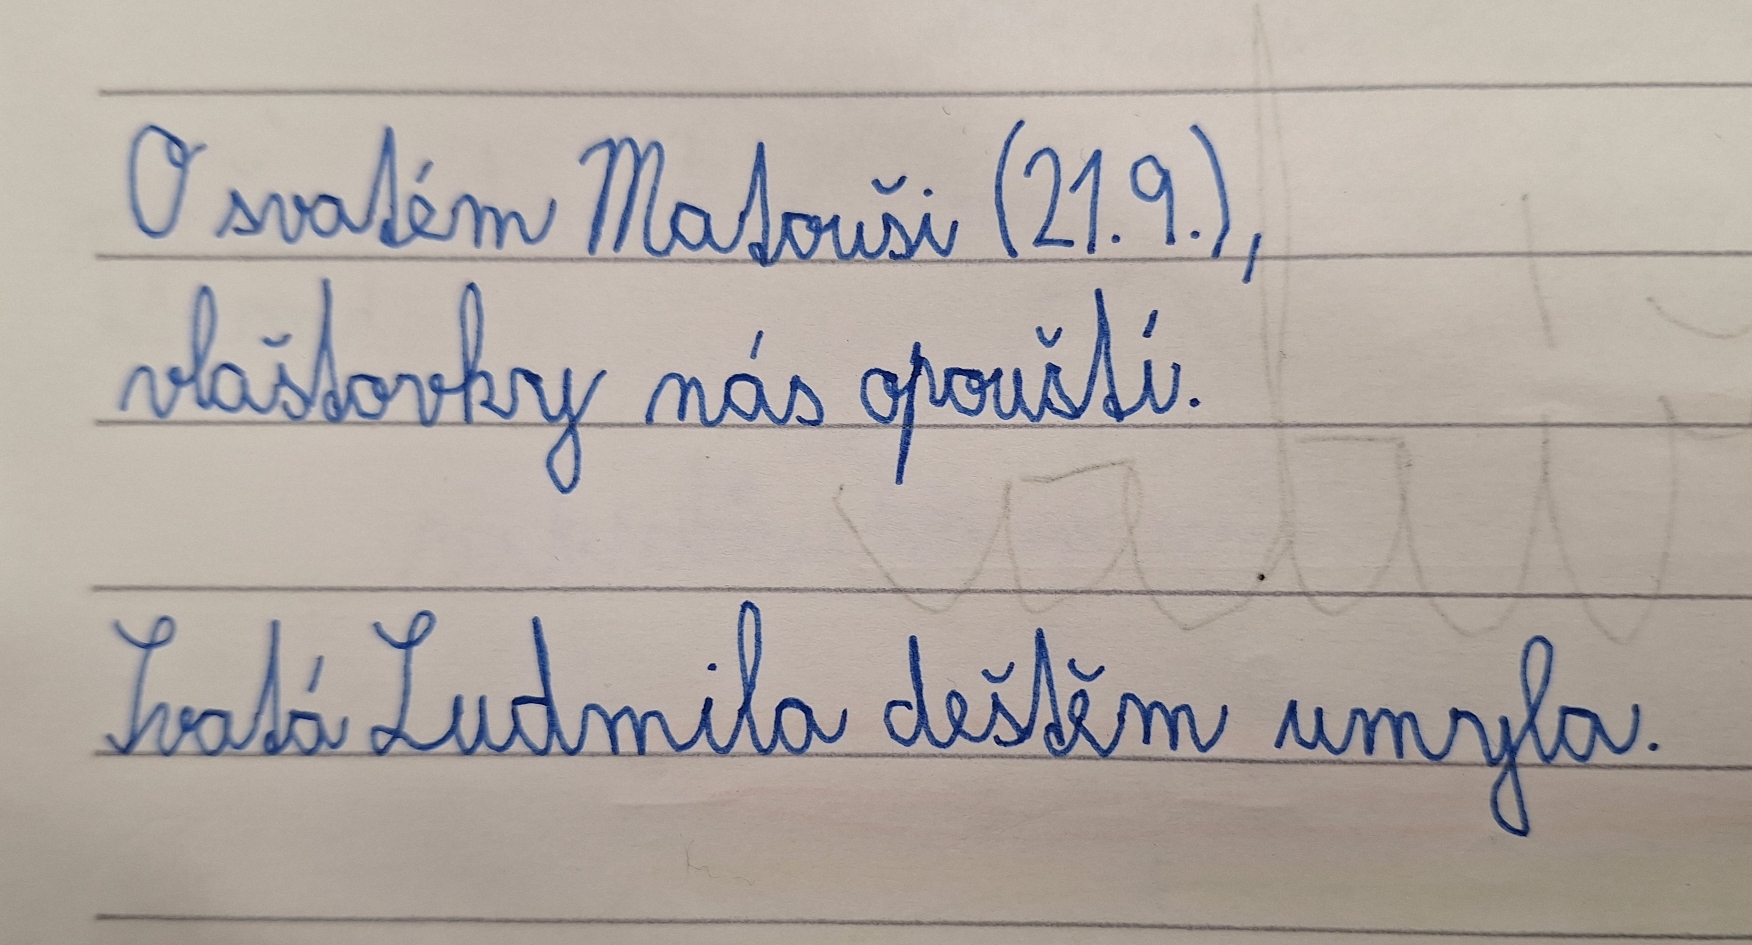 O svatém Matouši (21.9.),
vlaštovky nás opouští.
Svatá Ludmila deštěm umyla.